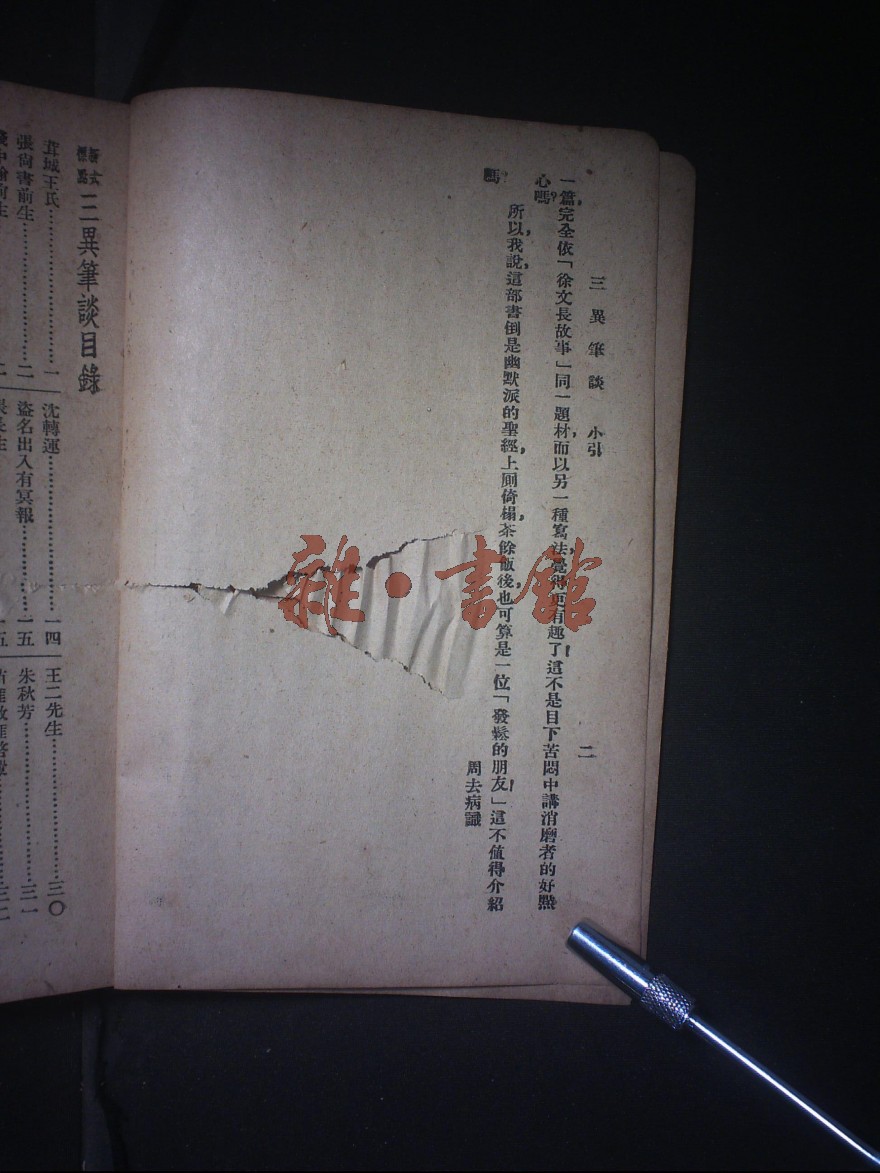 三異筆談 小引
二
一篇完全依「徐文長故事」同一題材，而以另一種寫法，覺得更有趣了！這不是目下苦悶中講消磨者的好點
心嗎？
所以，我說，這部書倒是幽默派的聖經，上厠倚榻，茶餘飯後，也可算是一位「發鬆的朋友！」這不値得介紹
嗎？
周去病識
雜·書館
新式標點 三異筆談目錄
茸城王氏……一
沈轉運……一四
王二先生……三〇
張尙書前生……二
盜名出入有冥報……一五
朱秋芳……三一